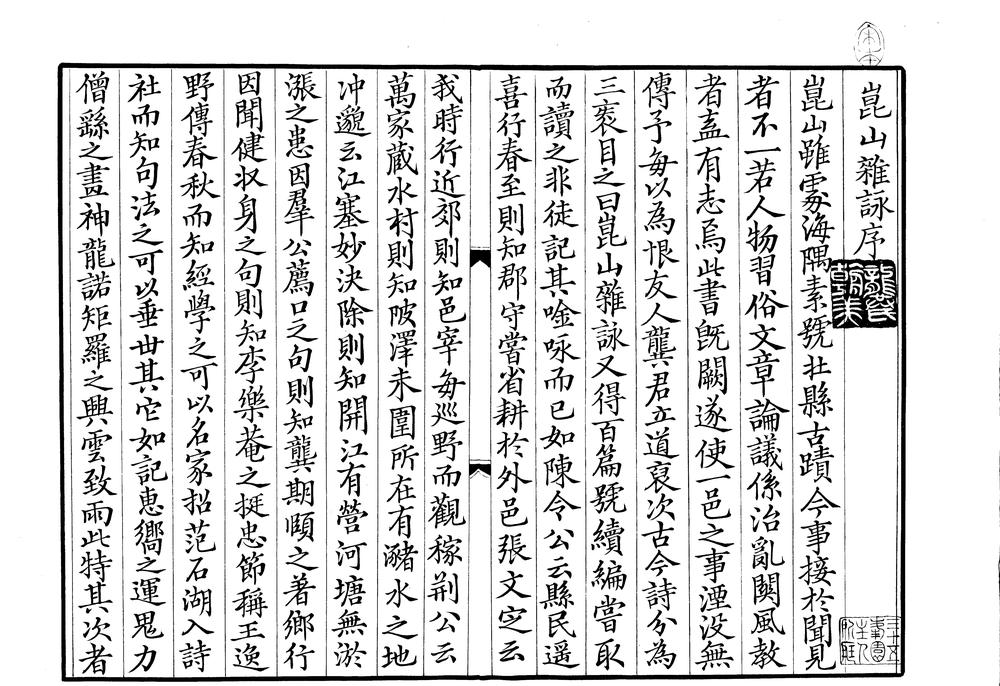 崑山雜詠序
崑山雖處海隅素號壯縣古蹟今事接於聞見
者不一若人物習俗文章論議係治亂關風教
者盍有志焉此書旣闕遂使一邑之事湮没無
傳予每以為恨友人龔君立道裒次古今詩分為
三袠目之曰崑山雜詠又得百篇號續編嘗取
而讀之非徒記其唫咏而已如陳令公云縣民遥
喜行春至則知郡守嘗省耕於外邑張文定云
我時行近郊則知邑宰每巡野而觀稼荆公云
萬家蔵水村則知陂澤未圍所在有瀦水之地
冲邈云江塞妙決除則知開江有營河塘無淤
漲之患因羣公薦口之句則知龔期頤之著鄉行
因聞健収身之句則知李樂菴之挺忠節稱王逸
野傳春秋而知經學之可以名家招范石湖入詩
社而知句法之可以垂世其它如記惠嚮之運鬼力
僧繇之畫神龍諾矩羅之興雲致雨此特其次者